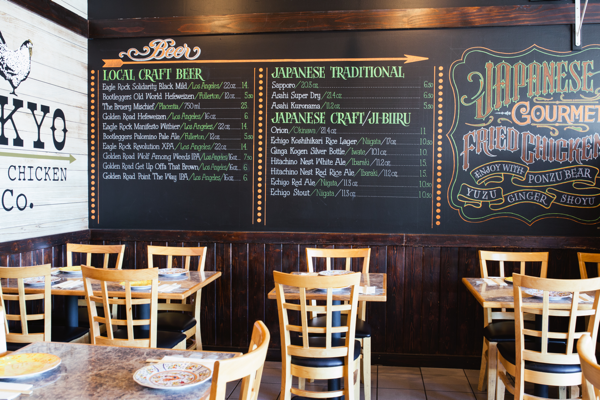 KYO
CHICKEN
Co.
Beer
LOCAL CRAFT BEER
Eagle Rock Solidarity Black Mild/Los Angeles/22oz...14
Bootleggers Old World Hefeweizen/Fullerton/12oz...5
The Bruery Mischief/Placentia/750ml 23
Golden Road Hefeweizen/Los Angeles/16oz. 6
Eagle Rock Manifesto Witbier/Los Angeles/22oz. 14
Bootleggers Palomino Pale Ale/Fullerton/12oz.
Eagle Rock Revolution XPA/Los Angeles/22oz.
Golden Road Wolf Among Weeds IPA/Los Angeles/16oz. 7
Golden Road Get Up Offa That Brown/Los Angeles/16oz. 6
Golden Road Point The Way IPA/Los Angeles/16oz. 6
JAPANESE TRADITIONAL
Sapporo/20.3oz
Asahi Super Dry/21.4oz
Asahi Kuronama/11.2oz
JAPANESE CRAFT/JI-BIIRU
Orion/Okinawa/21.4oz. 11
Echigo Koshihikari Rice Lager/Niigata/17oz.
Ginga Kogen Silver Bottle/Iwate/10.1oz.
Hitachino Nest White Ale/Ibaraki/11.2oz
Hitachino Nest Red Rice Ale/Ibaraki/11.2oz.
Echigo Red Ale/Niigata/11.3oz.
Echigo Stout/Niigata/11.3oz.
JAPANESE
GOURMET
FRIED CHICKEN
ENJOY WITH PONZU BEAR
YUZU GINGER SHOYU